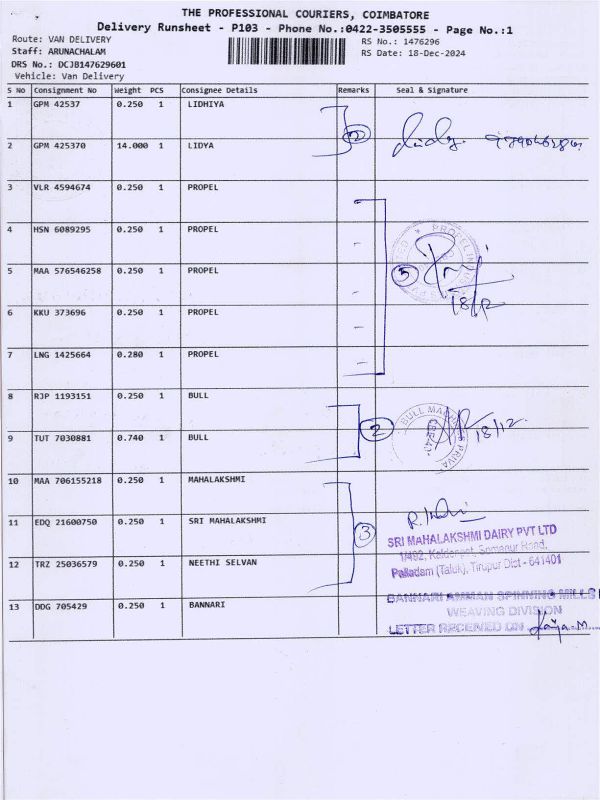 THE PROFESSIONAL COURIERS, COIMBATORE
Delivery Runsheet - P103 - Phone No.:0422-3505555 - Page No.:1
Route: VAN DELIVERY
RS No.: 1476296
Staff: ARUNACHALAM
RS Date: 18-Dec-2024
DRS No.: DCJB147629601
Vehicle: Van Delivery
S No Consignment No Weight PCS Consignee Details Remarks Seal & Signature
1 GPM 42537 0.250 1 LIDHIYA
2 GPM 425370 14.000 1 LIDYA
3 VLR 4594674 0.250 1 PROPEL
4 HSN 6089295 0.250 1 PROPEL
5 MAA 576546258 0.250 1 PROPEL
5
18/12
6 KKU 373696 0.250 1 PROPEL
7 LNG 1425664 0.280 1 PROPEL
8 RJP 1193151 0.250 1 BULL
2
BULL
18/12
9 TUT 7030881 0.740 1 BULL
10 MAA 706155218 0.250 1 MAHALAKSHMI
11 EDQ 21600750 0.250 1 SRI MAHALAKSHMI
3
SRI MAHALAKSHMI DAIRY PVT LTD
Palladam (Taluk), Tirupur Dist - 641401
12 TRZ 25036579 0.250 1 NEETHI SELVAN
13 DDG 705429 0.250 1 BANNARI
BANNARI AMMAN SPINNING MILLS
WEAVING DIVISION
LETTER RECEIVED ON